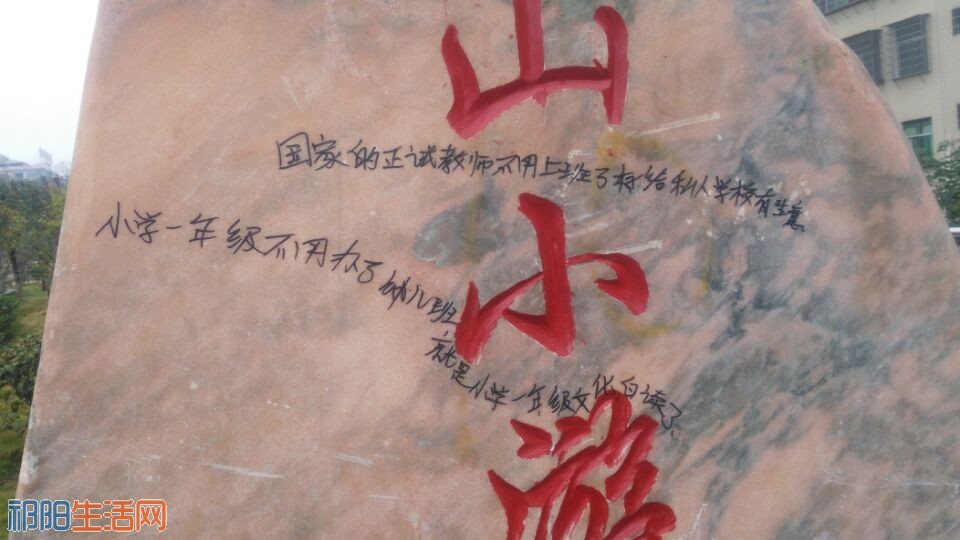 山小游
国家的正试教师不用上班了标给私人学校有生意
小学一年级不用办了幼儿班
就是小学一年级文化白读了.
祁阳生活网